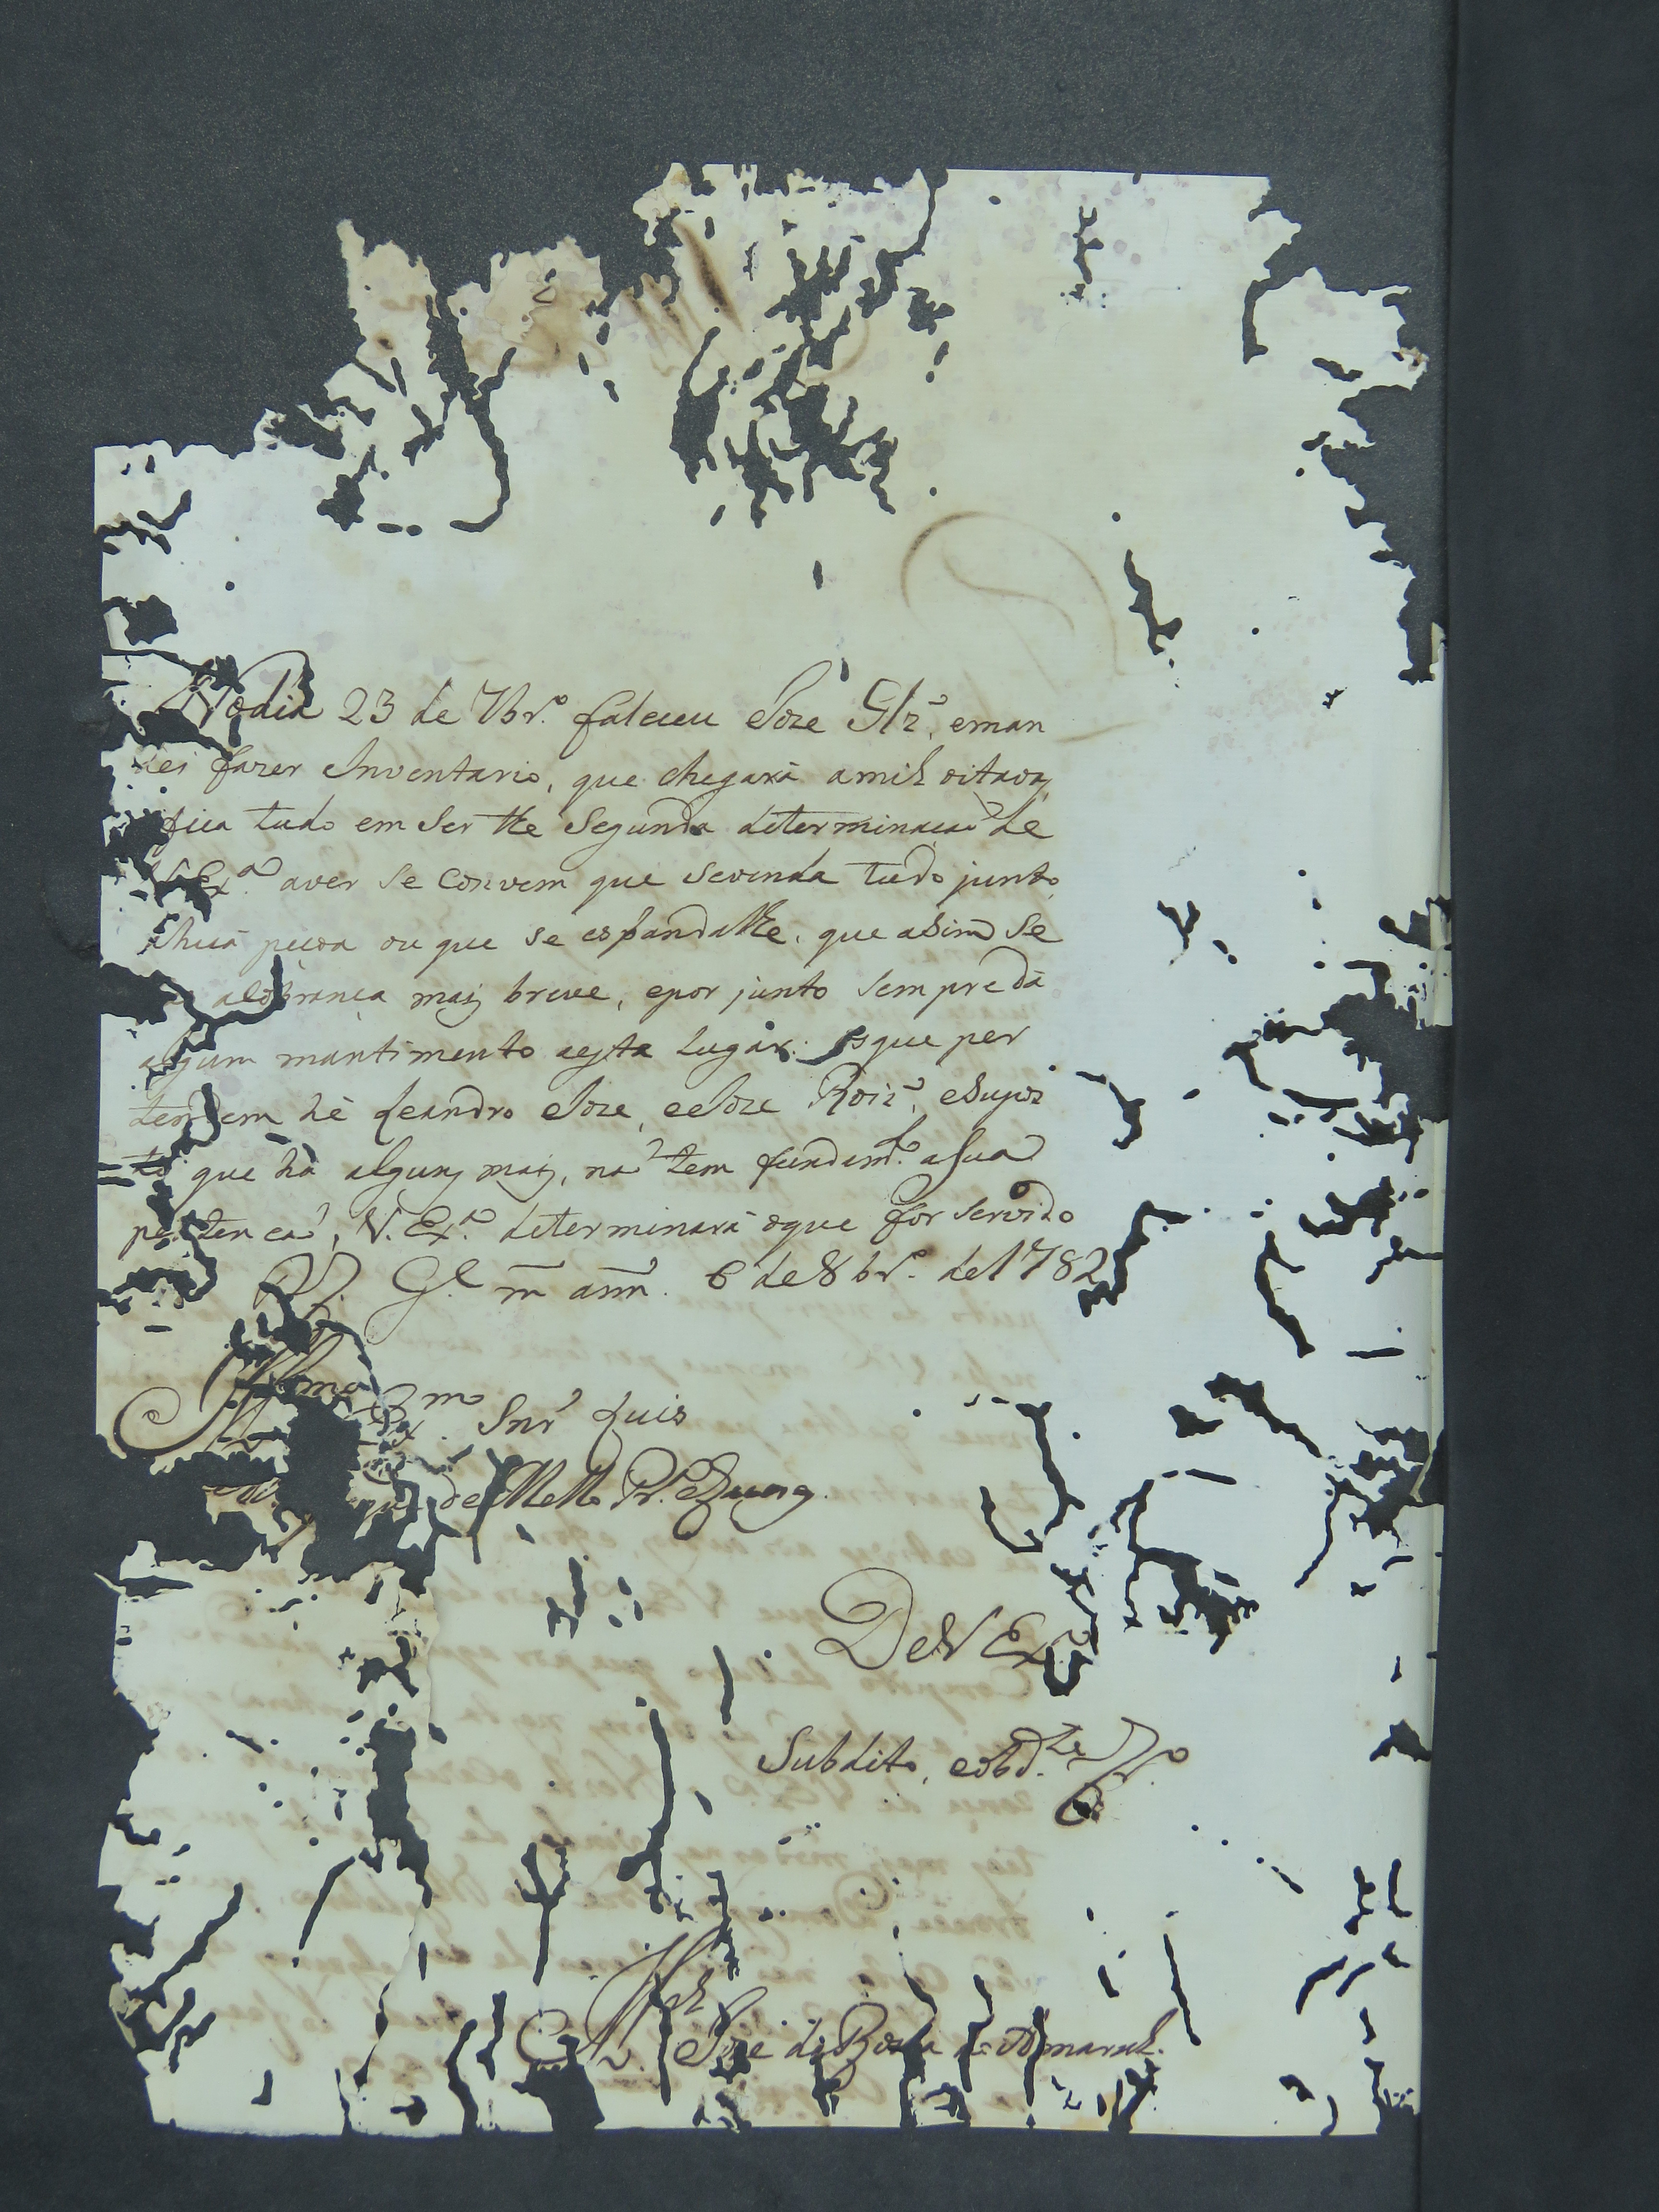 No dia 23 de 7br.º faleceu Joze Glz̃, eman
dei fazer Inventario, que chegará a mil oitavas,
fica tudo em Ser the Segunda determinaçaõ de
V. Ex.ª aver se convem que sevenda tudo junto
ahuã peçoa ou que se espandalhe, que asim se
alobrança mais breve, epor junto sempre dá
algum mantimento aesta Lugar. Os que per
tendem hé Leandro Joze, eJoze Roiz̃, eSupoz
to que há alguns mais, naõ tem fundam.to aSua
pertençaõ, V. Ex.ª determinará oque for servido
D.s G.e m̃ ann̄. 6 de 8br.º de 1782
Illmo Ex.mo Snr̃ Luis
de Mello Pr.ª eCunng
De V Ex.ª
Subdito, eobd.te
Joze da Rocha do Amaral.